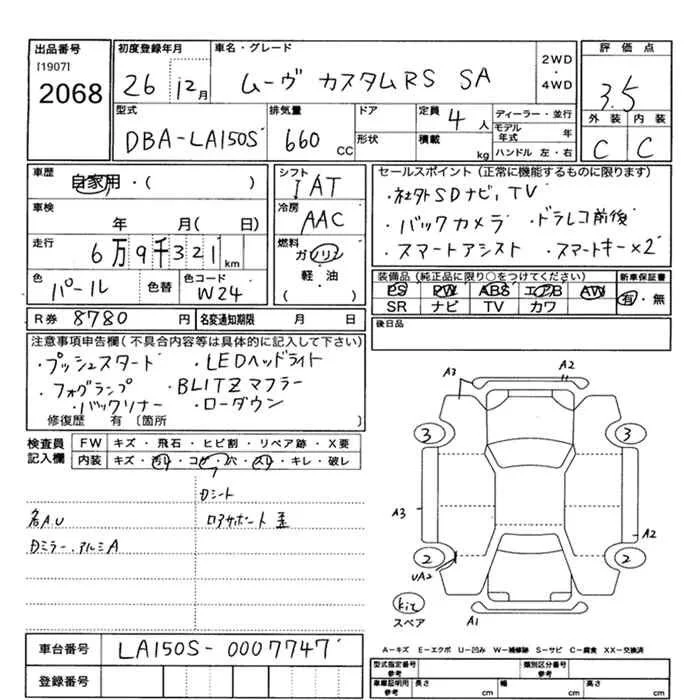 出品番号
[1907]
2068
初度登録年月
26 12月
車名・グレード
ムーヴ カスタムRS SA
2WD
・
4WD
評価点
3.5
外装 内装
C C
型式
DBA-LA150S
排気量
660 CC
ドア
形状
定員 4人
積載 kg
ディーラー・並行
モデル年式 年
ハンドル 左・右
車歴
自家用・( )
車検
年 月( 日)
走行
6万9千321km
色
パール
色替
色コード
W24
シフト
IAT
冷房
AAC
燃料
ガソリン
軽・油
( )
セールスポイント(正常に機能するものに限ります)
・社外SDナビ、TV
・バックカメラ ・ドラレコ前後
・スマートアシスト ・スマートキー×2
装備品(純正品に限り○をつけてください)
PS PW ABS エアB AW
SR ナビ TV カワ
新車保証書
有・無
後日品
R券 8780 円
名変通知期限 月 日
注意事項申告欄(不具合内容等は具体的に記入して下さい)
・プッシュスタート ・LEDヘッドライト
・フォグランプ ・BLITZマフラー
・バックソナー ・ローダウン
修復歴 有〔箇所 〕
検査員
記入欄
FW キズ・飛石・ヒビ割・リペア跡・X要
内装 キズ・汚れ・コゲ・穴・スレ・キレ・破レ
Dシート
各A.U
ロアサポート歪
Dミラー、アルミA
A3 A2
3 3
A3 A2
2 2
UA2
kit
スペア
A1
車台番号
LA150S-0007747
登録番号
A-キズ E-エクボ U-凹み W-補修跡 S-サビ C-腐食 XX-交換済
型式指定番号
参考
類別区分番号
参考
車庫証明用
参考
長さ cm
幅 cm
高さ cm